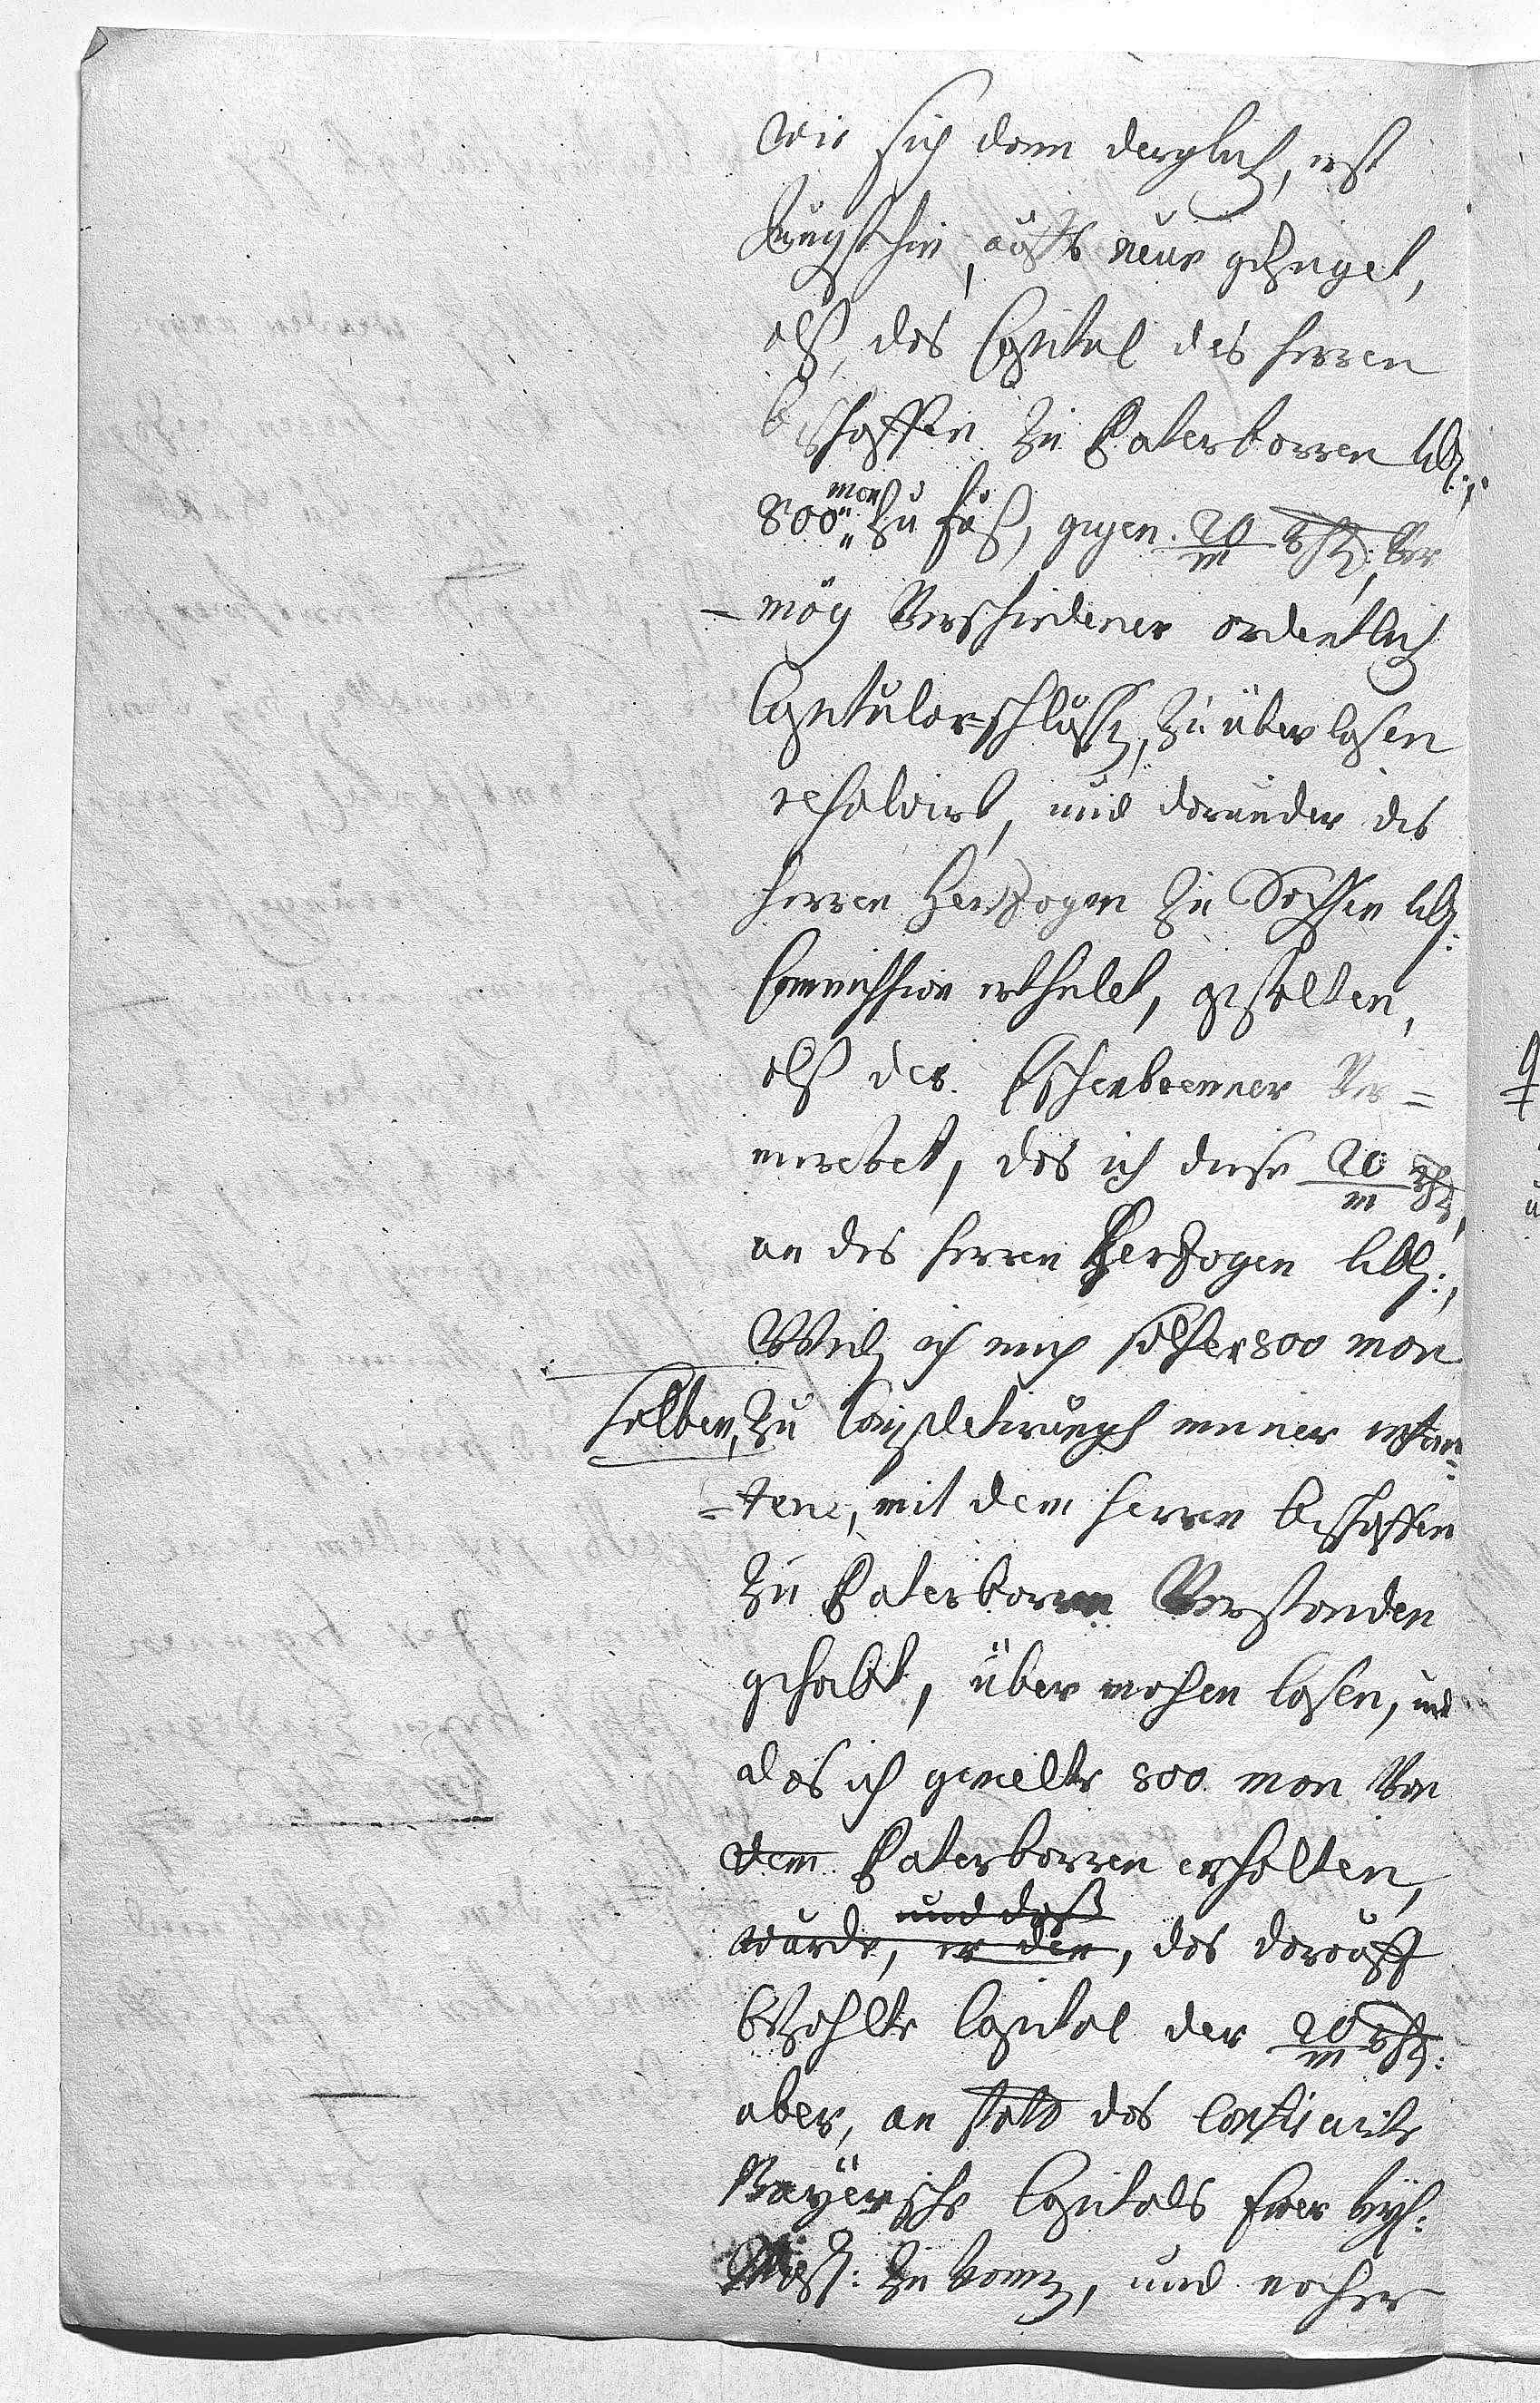 wie sich dann dergleich, erst
Jüngsthin, auffs neue geZeiget,
alß, das Capitul des herren
bischoffen zu Paterborren libd:,
800 man zu fuß, gegen 20/m rthl:, Ver
-mög Verschiedener ordentlich
Capitular-schlüssen, zu überlasen
resolvirt, und darunder des
herren Herzogen zu Sachsen libd:
Commission ertheilet, gestalten,
alß der Eschenbrenner Ver=
meldet, das ich diese 20/m rthl,
an des herren Herzogen libd:,
Welche ich mich solcher 800 man
halben, zu Completirung meiner
=tene, mit dem herren bischoffen
zu Paterborren Verstanden
gehabt, über machen lasen, und
das ich gemelte 800 man Von
dem Paterborren erhalten,
und daß
wurde, er den, das darauff
bezahlte Capital der 20/m rthl:
aber, an statt des
Bayerische Capitals Euer keys:
Mayst: zu komen, und nacher